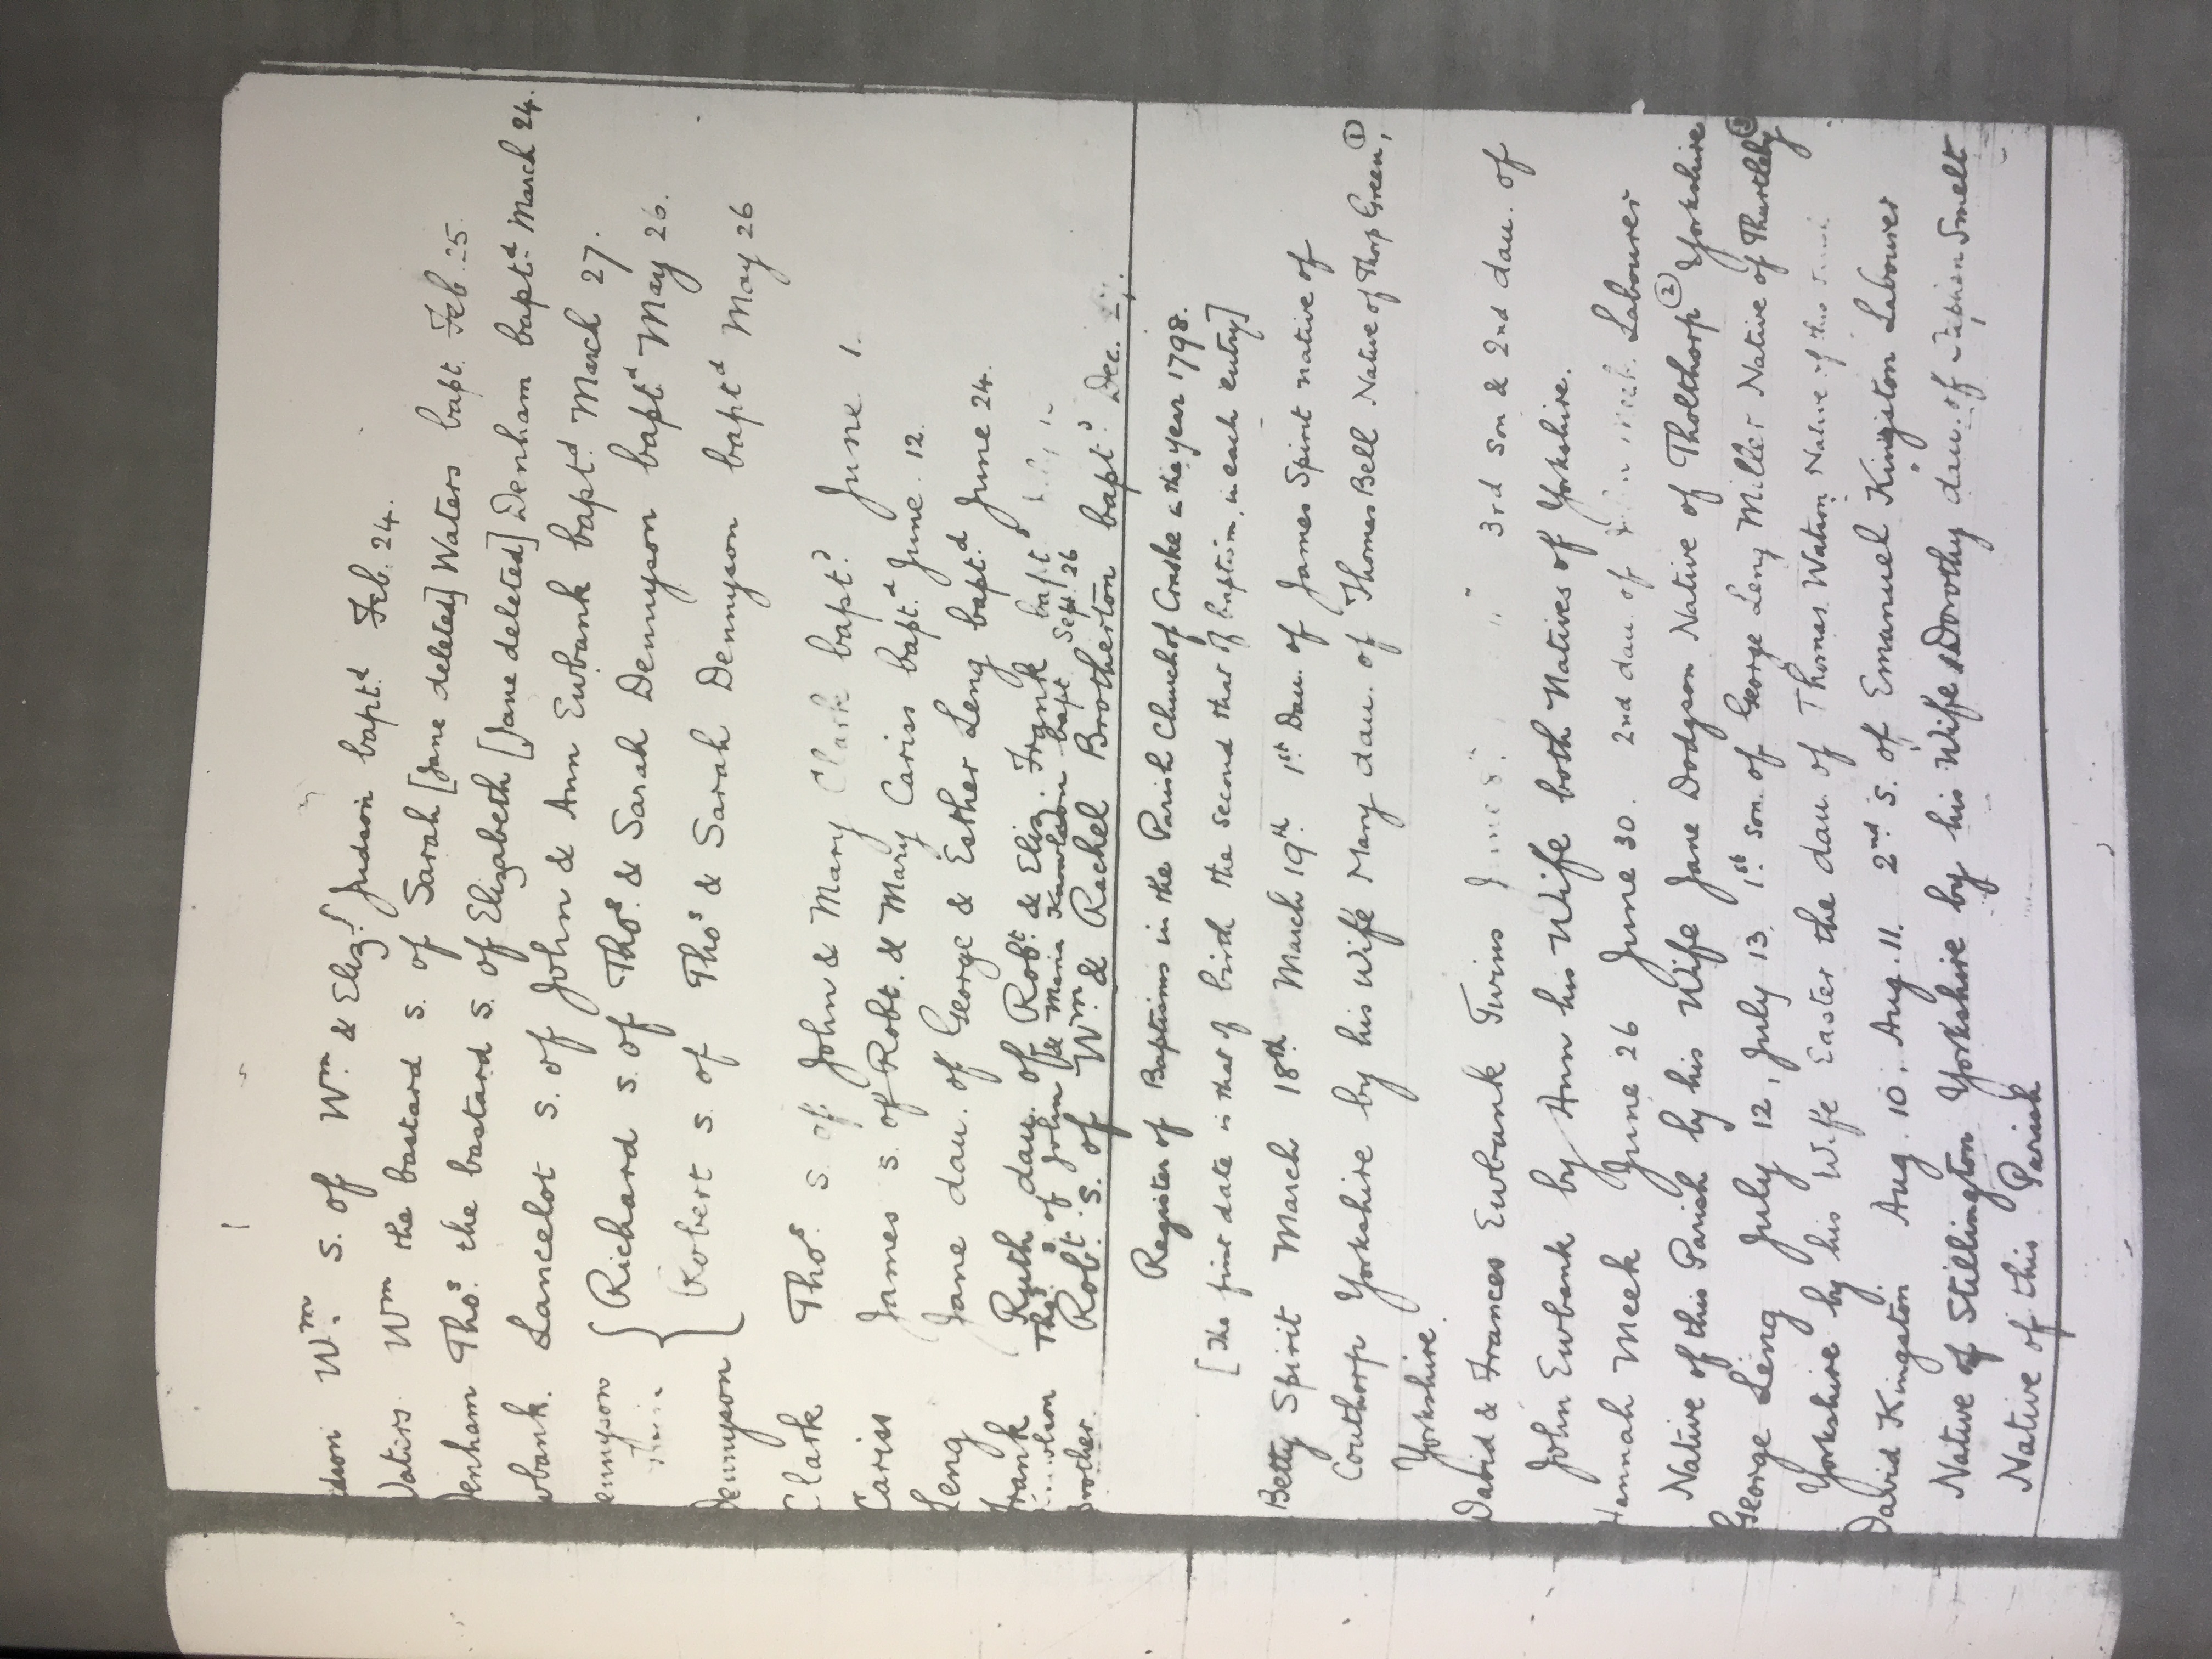 Wm. s. of Wm. & Eliz. Judson bapt.d Feb. 24.
Wm the bastard s. of Sarah [Jane deleted] Waters bapt. Feb. 25
Denham Thos. the bastard s. of Elizabeth [Jane deleted] Denham bapt.d March 24.
Lancelot s. of John & Ann Ewbank bapt.d March 27.
{ Richard s. of Thos. & Sarah Dennyson bapt.d May 26.
Dennyson { Robert s. of Thos & Sarah Dennyson bapt.d May 26
Clark Thos. s. of John & Mary Clark bapt.d June 1.
Cariss James s. of Robt. & Mary Cariss bapt.d June. 12.
Leng Jane dau. of George & Esther Leng bapt.d June 24.
Frank Ruth dau. of Robt. & Eliz. Frank bapt.d
Thos. s. of John & Maria Knowlson bapt Sept. 26
Brother. Robt. s. of Wm. & Rachel Brotherton bapt.d Dec.
Register of Baptisms in the Parish Church of Crayke in the year 1798.
[The first date is that of birth the second that of baptism, in each entry]
Betty Spirit March 18th March 19th 1st Dau. of James Spirit native of
Coulthorp Yorkshire by his Wife Mary dau. of Thomas Bell Native of Thorp Green, ①
Yorkshire.
David & Frances Ewbank Twins 3rd son & 2nd dau. of
John Ewbank by Ann his Wife both Natives of Yorkshire.
Hannah Meek June 26 June 30. 2nd dau. of Meek Labourer
Native of this Parish by his Wife Jane Dodgson Native of Tholthorp ② Yorkshire
George Leng July 12, July 13. 1st son. of George Leng Miller Native of Thurtleby ①
Yorkshire by his Wife Easter the dau. of Thomas Watson Native of this
David Kingston. Aug. 10. Aug. 11. 2nd. s. of Emanuel Kingston Labourer
Native of Stillington Yorkshire by his Wife Dorothy dau. of Smelt
Native of this Parish